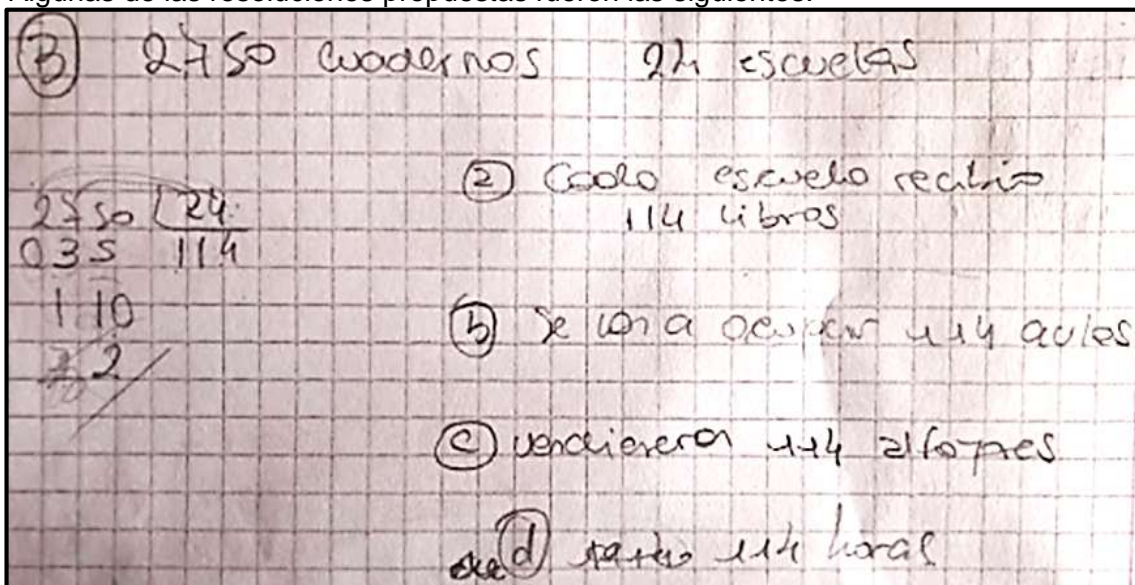 Algunas de las resoluciones propuestas fueron las siguientes:
B 2750 cuadernos 24 escuelas
2750 24
035 114
110
2
a Cada escuela recibio
114 libros
b Se van a ocupar 114 aulas
c vendieron 114 alfajores
d 114 horas